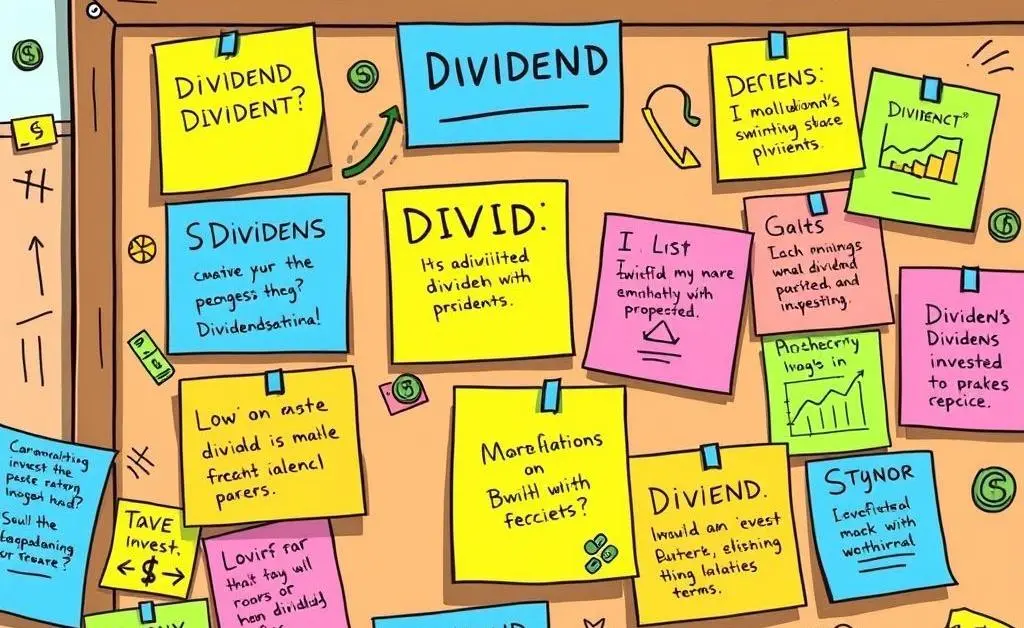 DIVIDEND
DIVIDENT?
DIVIDEND
DERIENS:
I mollutionn's
sminting stace
plvirents.
DIVIFNCT"
SDIVIDENS
creative yur the
pengess thęg?
Dividendsatrina!
DIVID:
Its adiviited
divideh with
prsidents.
I. LIST
Iwitfid my nare
emnhatly with
propected.
Galts
Iach mnings
wnal dividend
partted, and
invpesting.
DiviDEN'S
DiviDENS
invested
to prakes
repcice.
ivags in
Low' on easte
dividd is malle
frecnt ialencl
parers.
Morefiations
on
Bwitl wlith
fecciets?
DiViEND.
Iwould an 'evest
Buterk, elishing
thing lalaties
terms.
STYNOR
Levefistal
mack with
wothirral
invest the
Soull the
TAVE
invest.
← $ →
Lovirf rar
that tay wll
roars or
hen dividlad